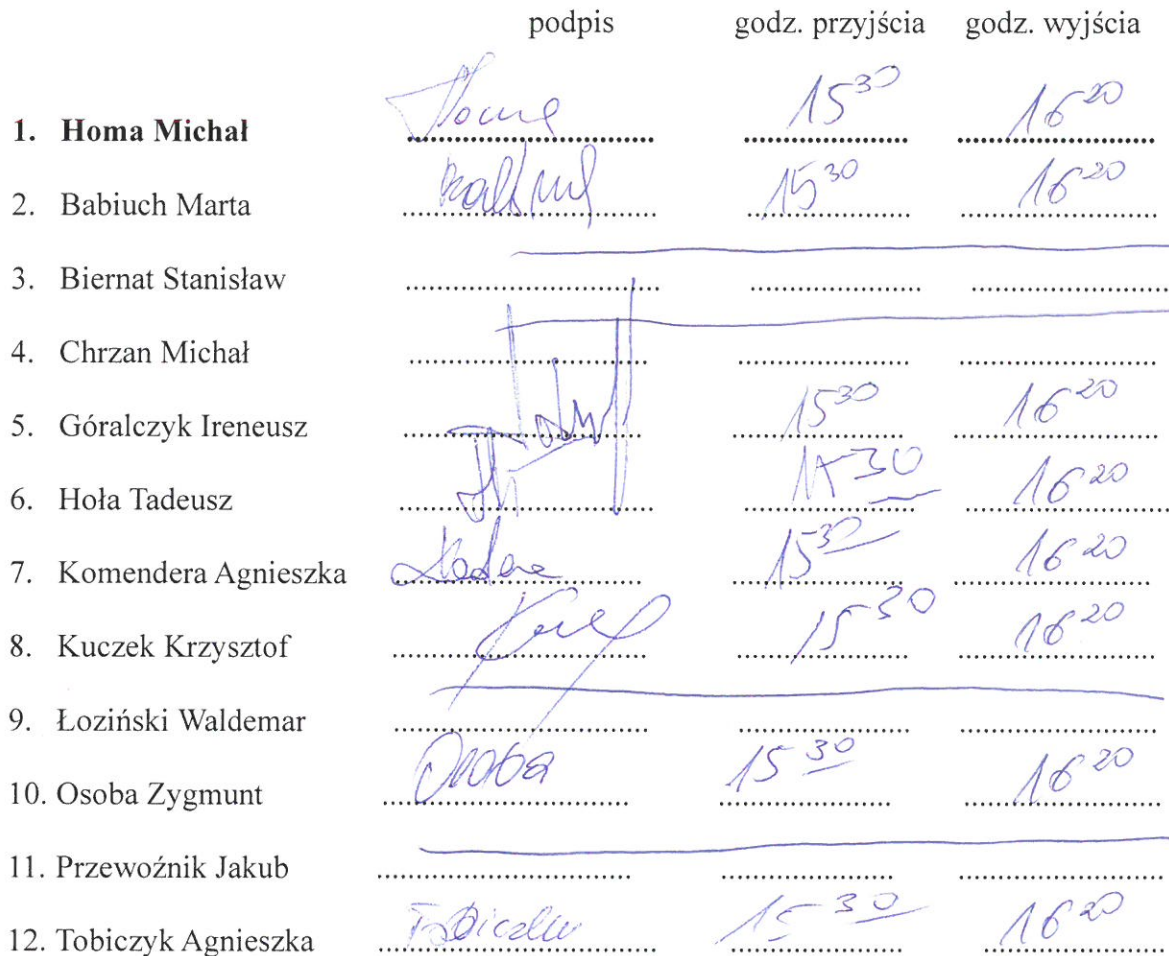 podpis godz. przyjścia godz. wyjścia
1. Homa Michał 15 30 16 20
2. Babiuch Marta 15 30 16 20
3. Biernat Stanisław
4. Chrzan Michał
5. Góralczyk Ireneusz 15 30 16 20
6. Hoła Tadeusz 15 30 16 20
7. Komendera Agnieszka 15 30 16 20
8. Kuczek Krzysztof 15 30 16 20
9. Łoziński Waldemar
10. Osoba Zygmunt Osoba 15 30 16 20
11. Przewoźnik Jakub
12. Tobiczyk Agnieszka 15 30 16 20